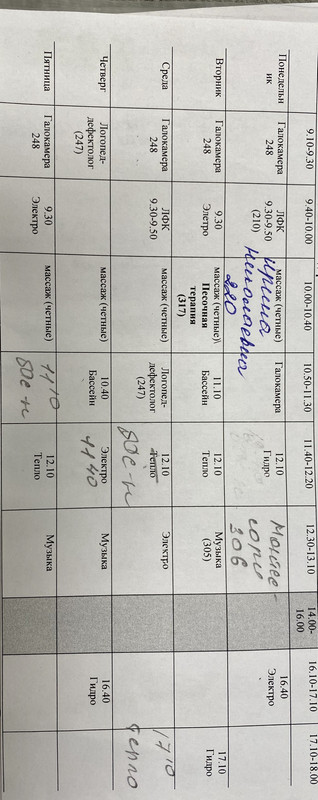 9.10-9.30 9.40-10.00 10.00-10.40 10.50-11.30 11.40-12.20 12.30-13.10 14.00-16.00 16.10-17.10 17.10-18.00
Понедельн
ик
Галокамера
248
ЛФК
9.30-9.50
(210)
массаж (четные)
Ирина
Николаевна
220
Галокамера
12.10
Гидро
Монтес
сори
306
16.40
Электро
Вторник
Галокамера
248
9.30
Элетро
массаж (четные)\
Песочная
терапия
(317)
11.10
Бассейн
12.10
Тепло
Музыка
(305)
17.10
Гидро
Среда
Галокамера
248
ЛФК
9.30-9.50
массаж (четные)
Логопед-
дефектолог
(247)
12.10
Тепло
Электро
17 10
Четверг
Логопед-
дефектолог
(247)
массаж (четные)
10.40
Бассейн
Электро
11 40
Музыка
16.40
Гидро
Пятница
Галокамера
248
9.30
Электро
массаж (четные)
11 10
12.10
Тепло
Музыка